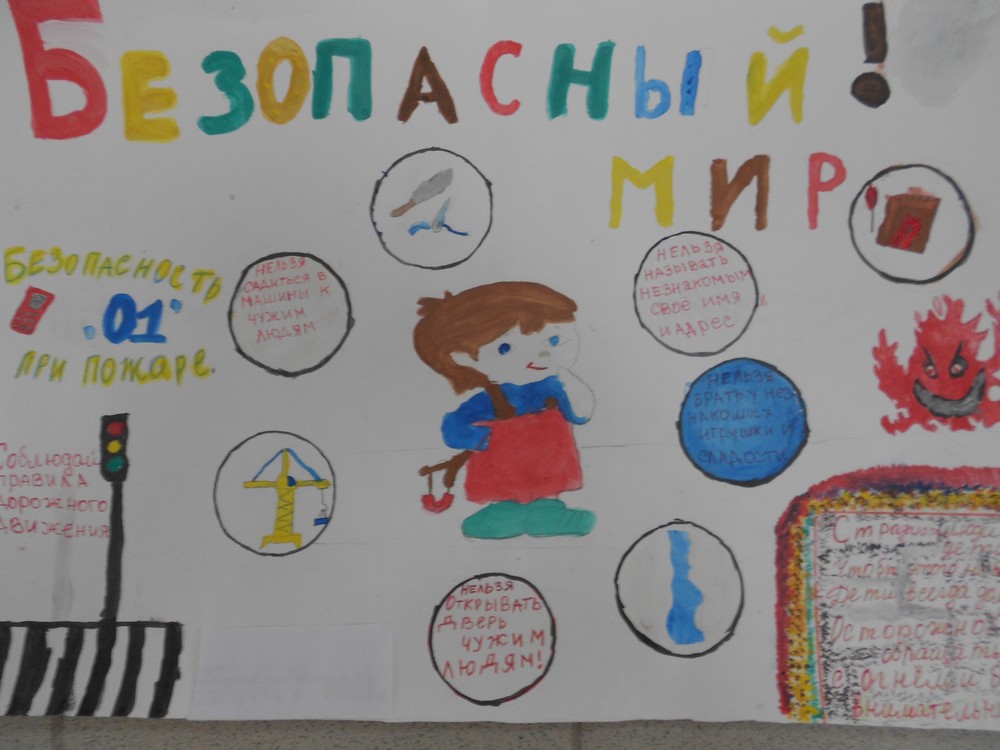 БЕЗОПАСНЫЙ!
МИР
БЕЗОПАСНОСТЬ
"01"
ПРИ ПОЖАРЕ.
НЕЛЬЗЯ
САДИТЬСЯ В
МАШИНЫ К
ЧУЖИМ
ЛЮДЯМ
НЕЛЬЗЯ
НАЗЫВАТЬ
НЕЗНАКОМЫМ
СВОЕ ИМЯ
И АДРЕС
НЕЛЬЗЯ
БРАТЬ У НЕЗ
НАКОМЫХ
ИГРУШКИ И
СЛАДОСТИ
Соблюдай
правила
дорожного
движения
НЕЛЬЗЯ
ОТКРЫВАТЬ
ДВЕРЬ
ЧУЖИМ
ЛЮДЯМ!
Дети всегда
Осторожно
с огнём